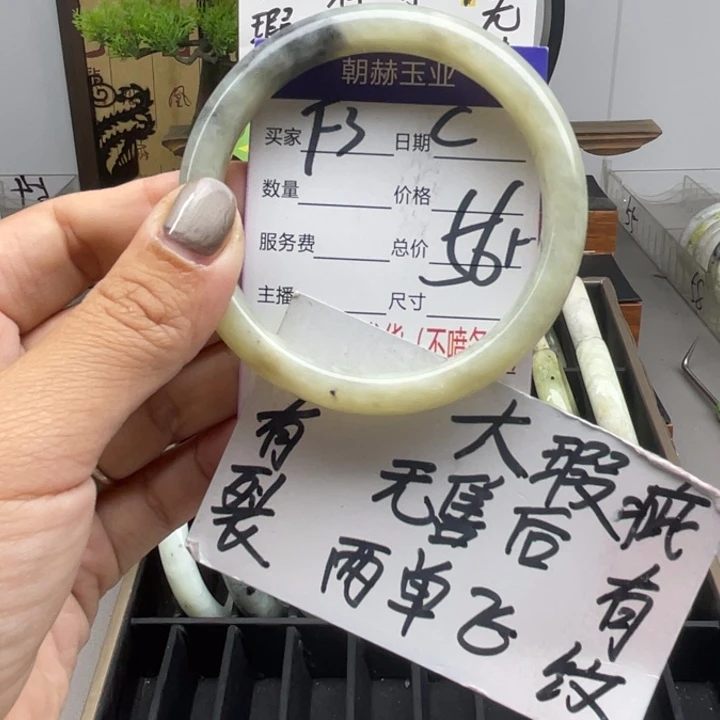 瑕
无
朝赫玉业
买家 F3 日期 C
数量 价格
服务费 总价 56r
主播 尺寸
(不喷
有裂
大瑕疵
无售后
有纹
两单飞